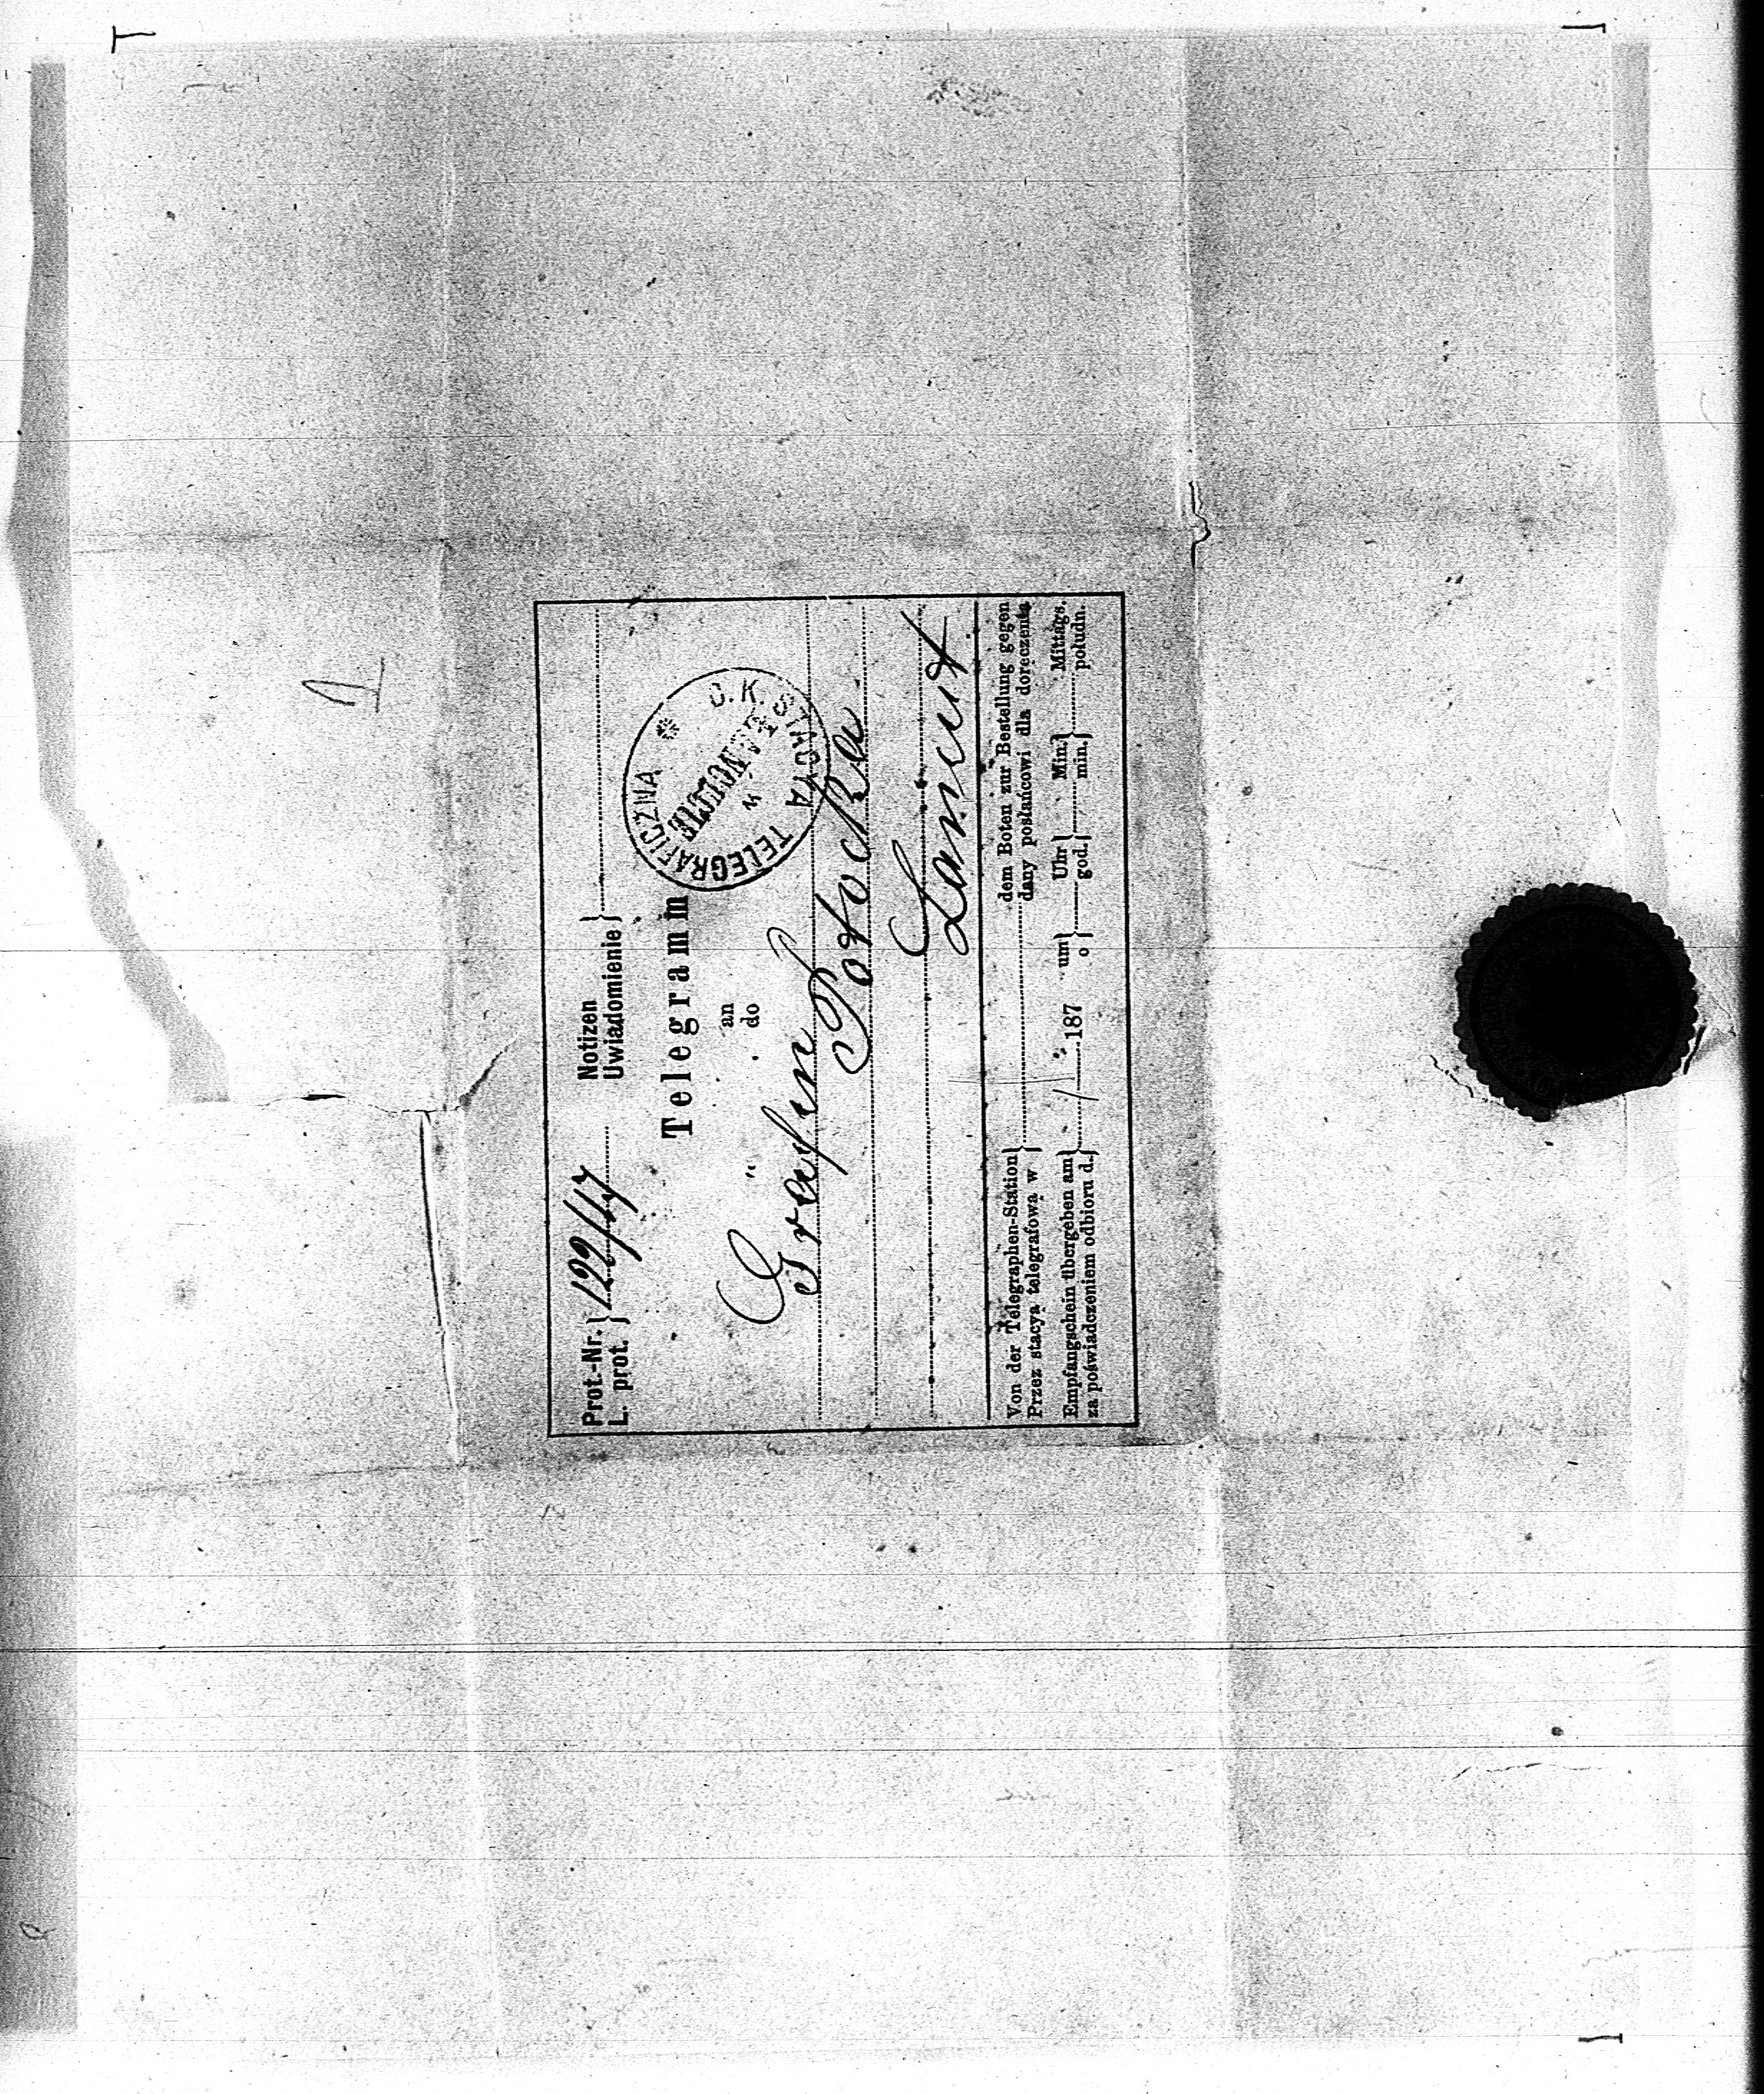 Prot.-Nr. } 122/17 Notizen }
L. prot. } Uwiadomienie }
Telegramm
an
do
C. K. STACYA TELEGRAFICZNA
w
ŁAŃCUCIE
Gräfin
Potocka
Lancut
Von der Telegraphen-Station } dem Boten zur Bestellung gegen
Przez stacya telegrafowa w } dany posłańcowi dla doręczenia
Empfangschein übergeben am } 187 um } Uhr } Min. } Mittags.
za poświadczeniem odbioru d. } o } god. } min. } południ.